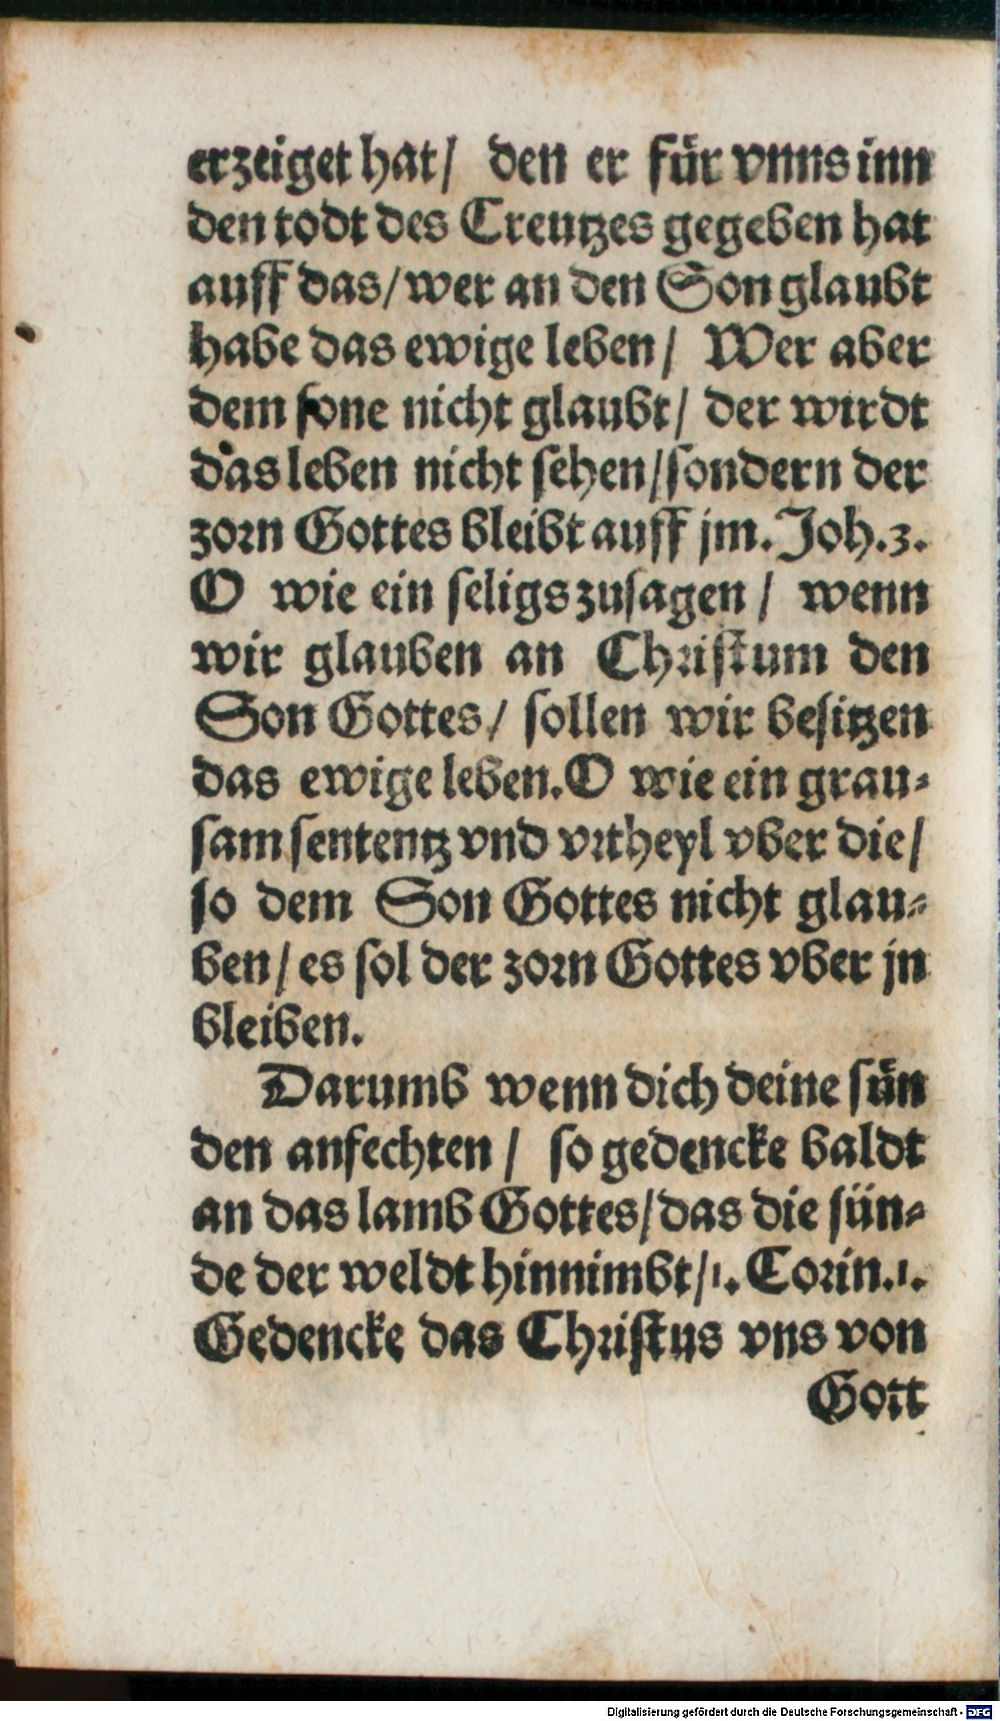 erzeiget hat/ den er für vnns inn
den todt des Creutzes gegeben hat
auff das/wer an den Son glaubt
habe das ewige leben/ Wer aber
dem sone nicht glaubt/ der wirdt
das leben nicht sehen/sondern der
zorn Gottes bleibt auff jm. Joh.3.
O wie ein seligs zusagen/ wenn
wir glauben an Christum den
Son Gottes/ sollen wir besitzen
das ewige leben. O wie ein grau-
sam sententz vnd vrtheyl vber die/
so dem Son Gottes nicht glau-
ben/es sol der zorn Gottes vber jn
bleiben.
Darumb wenn dich deine sün
den anfechten/ so gedencke baldt
an das lamb Gottes/das die sün-
de der weldt hinnimbt/1. Corin.1.
Gedencke das Christus vns von
Gott
Digitalisierung gefördert durch die Deutsche Forschungsgemeinschaft - DFG